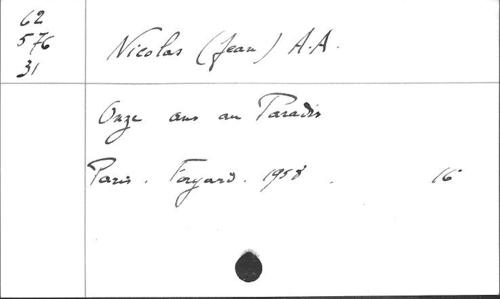 62
576
31
Nicolas (Jean) A.A.
Onze ans au Paradis
Paris. Fayard. 1958. 16°